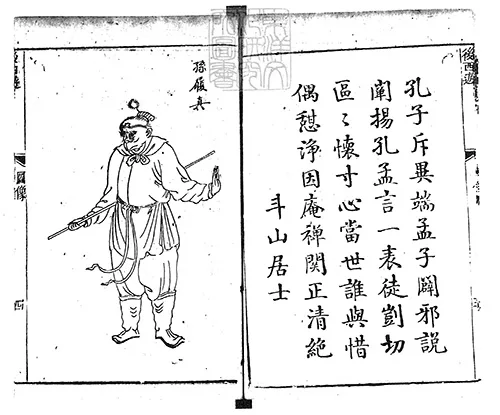 後西遊
孔子斥異端孟子闢邪說
闡揚孔孟言一表徒剴切
區〻懷寸心當世誰與惜
偶憇淨因庵禪関正清絶
斗山居士
孫履真
圖像